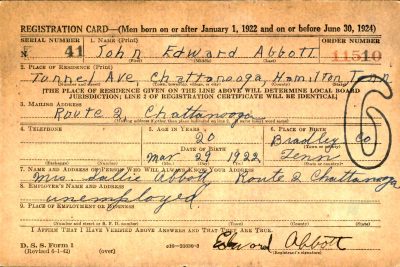 REGISTRATION CARD—(Men born on or after January 1, 1922 and on or before June 30, 1924)
SERIAL NUMBER 1. NAME (Print) ORDER NUMBER
N 41 John Edward Abbott 11510
2. PLACE OF RESIDENCE (Print)
Tunnel Ave, Chattanooga, Hamilton, Tenn
[THE PLACE OF RESIDENCE GIVEN ON THE LINE ABOVE WILL DETERMINE LOCAL BOARD
JURISDICTION; LINE 2 OF REGISTRATION CERTIFICATE WILL BE IDENTICAL]
3. MAILING ADDRESS
Route 2 Chattanooga
4. TELEPHONE 5. AGE IN YEARS 6. PLACE OF BIRTH
20 Bradley Co.
DATE OF BIRTH (Town or county)
Mar 29 1922 Tenn
(Exchange) (Number) (Mo.) (Day) (Yr.) (State or country)
7. NAME AND ADDRESS OF PERSON WHO WILL ALWAYS KNOW YOUR ADDRESS
Mrs. Sallie Abbott Route 2 Chattanooga
8. EMPLOYER'S NAME AND ADDRESS
unemployed
9. PLACE OF EMPLOYMENT OR BUSINESS
(Number and street or R. F. D. number) (Town) (County) (State)
I AFFIRM THAT I HAVE VERIFIED ABOVE ANSWERS AND THAT THEY ARE TRUE.
D. S. S. Form 1 Edward Abbott
(Revised 6-1-42) (over) (Registrant's signature)
6